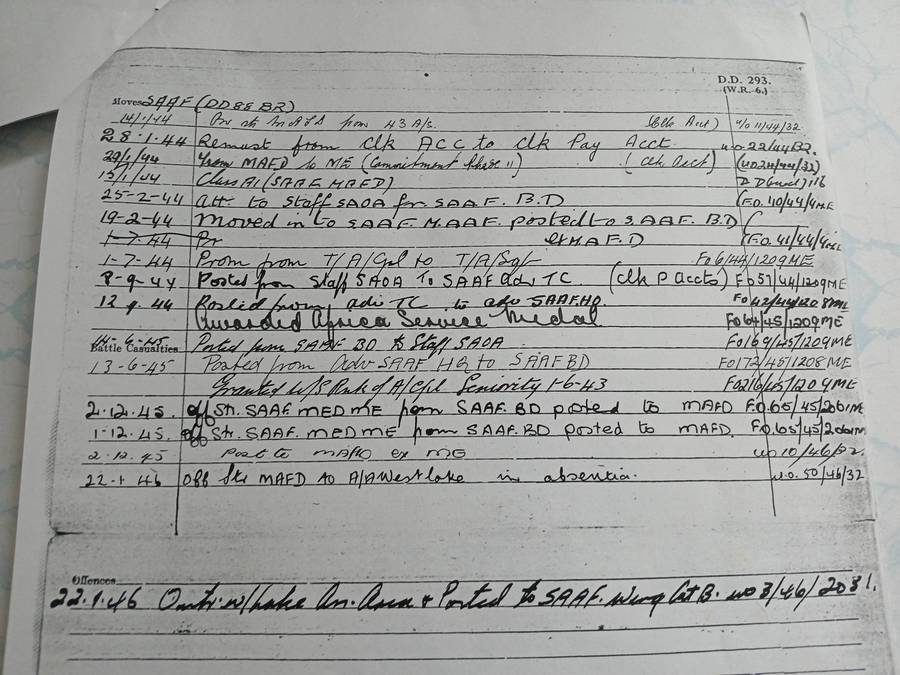 D.D. 293.
(W.R.-6.)
Moves SAAF (DD88 BR)
14/1/44 from 43 A/S. (Clk Acct) W/O 11/44/32
28.1.44 Remust from Clk ACC to Clk Pay Acct W.O.22/44/32.
29/1/44 from MAFD to ME (Commitment Phase 11) (Clk Acct) (WO24/44/32)
15/1/44 Class A1 (SAAF MAFD)
25-2-44 att to Staff SAOA for SAAF. B.D (F.O. 40/44/4ME
19-2-44 Moved in to SAAF. M.AAF. posted to SAAF. B.D
1-7-44 ex M A F. D (F.O. 41/44/4ME
1-7-44 Prom from T/A/Cpl to T/A/Sgt F.O 6/44/1209ME
8-9-44 Posted from Staff SAOA To SAAF Adv TC (Clk P Accts) F.O 57/44/1209ME
12.9.44 Posted from adv TC to adv SAAF.HQ. F.O 42/44/1208ME
Awarded Africa Service Medal F.O 64/45/1209ME
Battle Casualties 14-6-45 Posted from SAAF BD to Staff SAOA F.O 169/45/1209ME
13-6-45 Posted from Adv SAAF HQ to SAAF BD F.O 172/45/1208ME
Granted W/S Rank of A/Cpl Seniority 1-6-43 F.O 216/45/1209ME
2.12.45. off Str. SAAF MED ME from SAAF. BD posted to MAFD F.O.65/45/206ME
1-12.45. off Str. SAAF. MED ME from SAAF. BD posted to MAFD. F.O.65/45/206ME
2.12.45 Post to ex ME W.O 10/46/32.
22.1.46 Off Str MAFD to A/A Westlake in absentia. W.O. 50/46/32
Offences
22.1.46 W/Lake An. Area & Posted to SAAF. Wing Cat B. WO 3/46/2031.